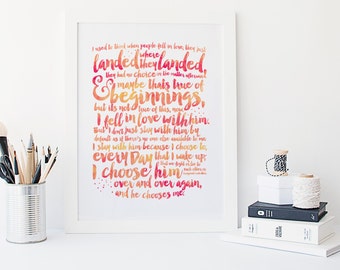 I used to think when people fell in love, they just
landed where they landed,
they had no choice in the matter afterward.
& maybe that's true of
beginnings,
but it's not true of this, now.
I fell in love with him.
But I don't just stay with him by
default as if there's no one else available to me.
I stay with him because I choose to,
every day that I wake up,
I choose him
over and over again,
and he chooses me.